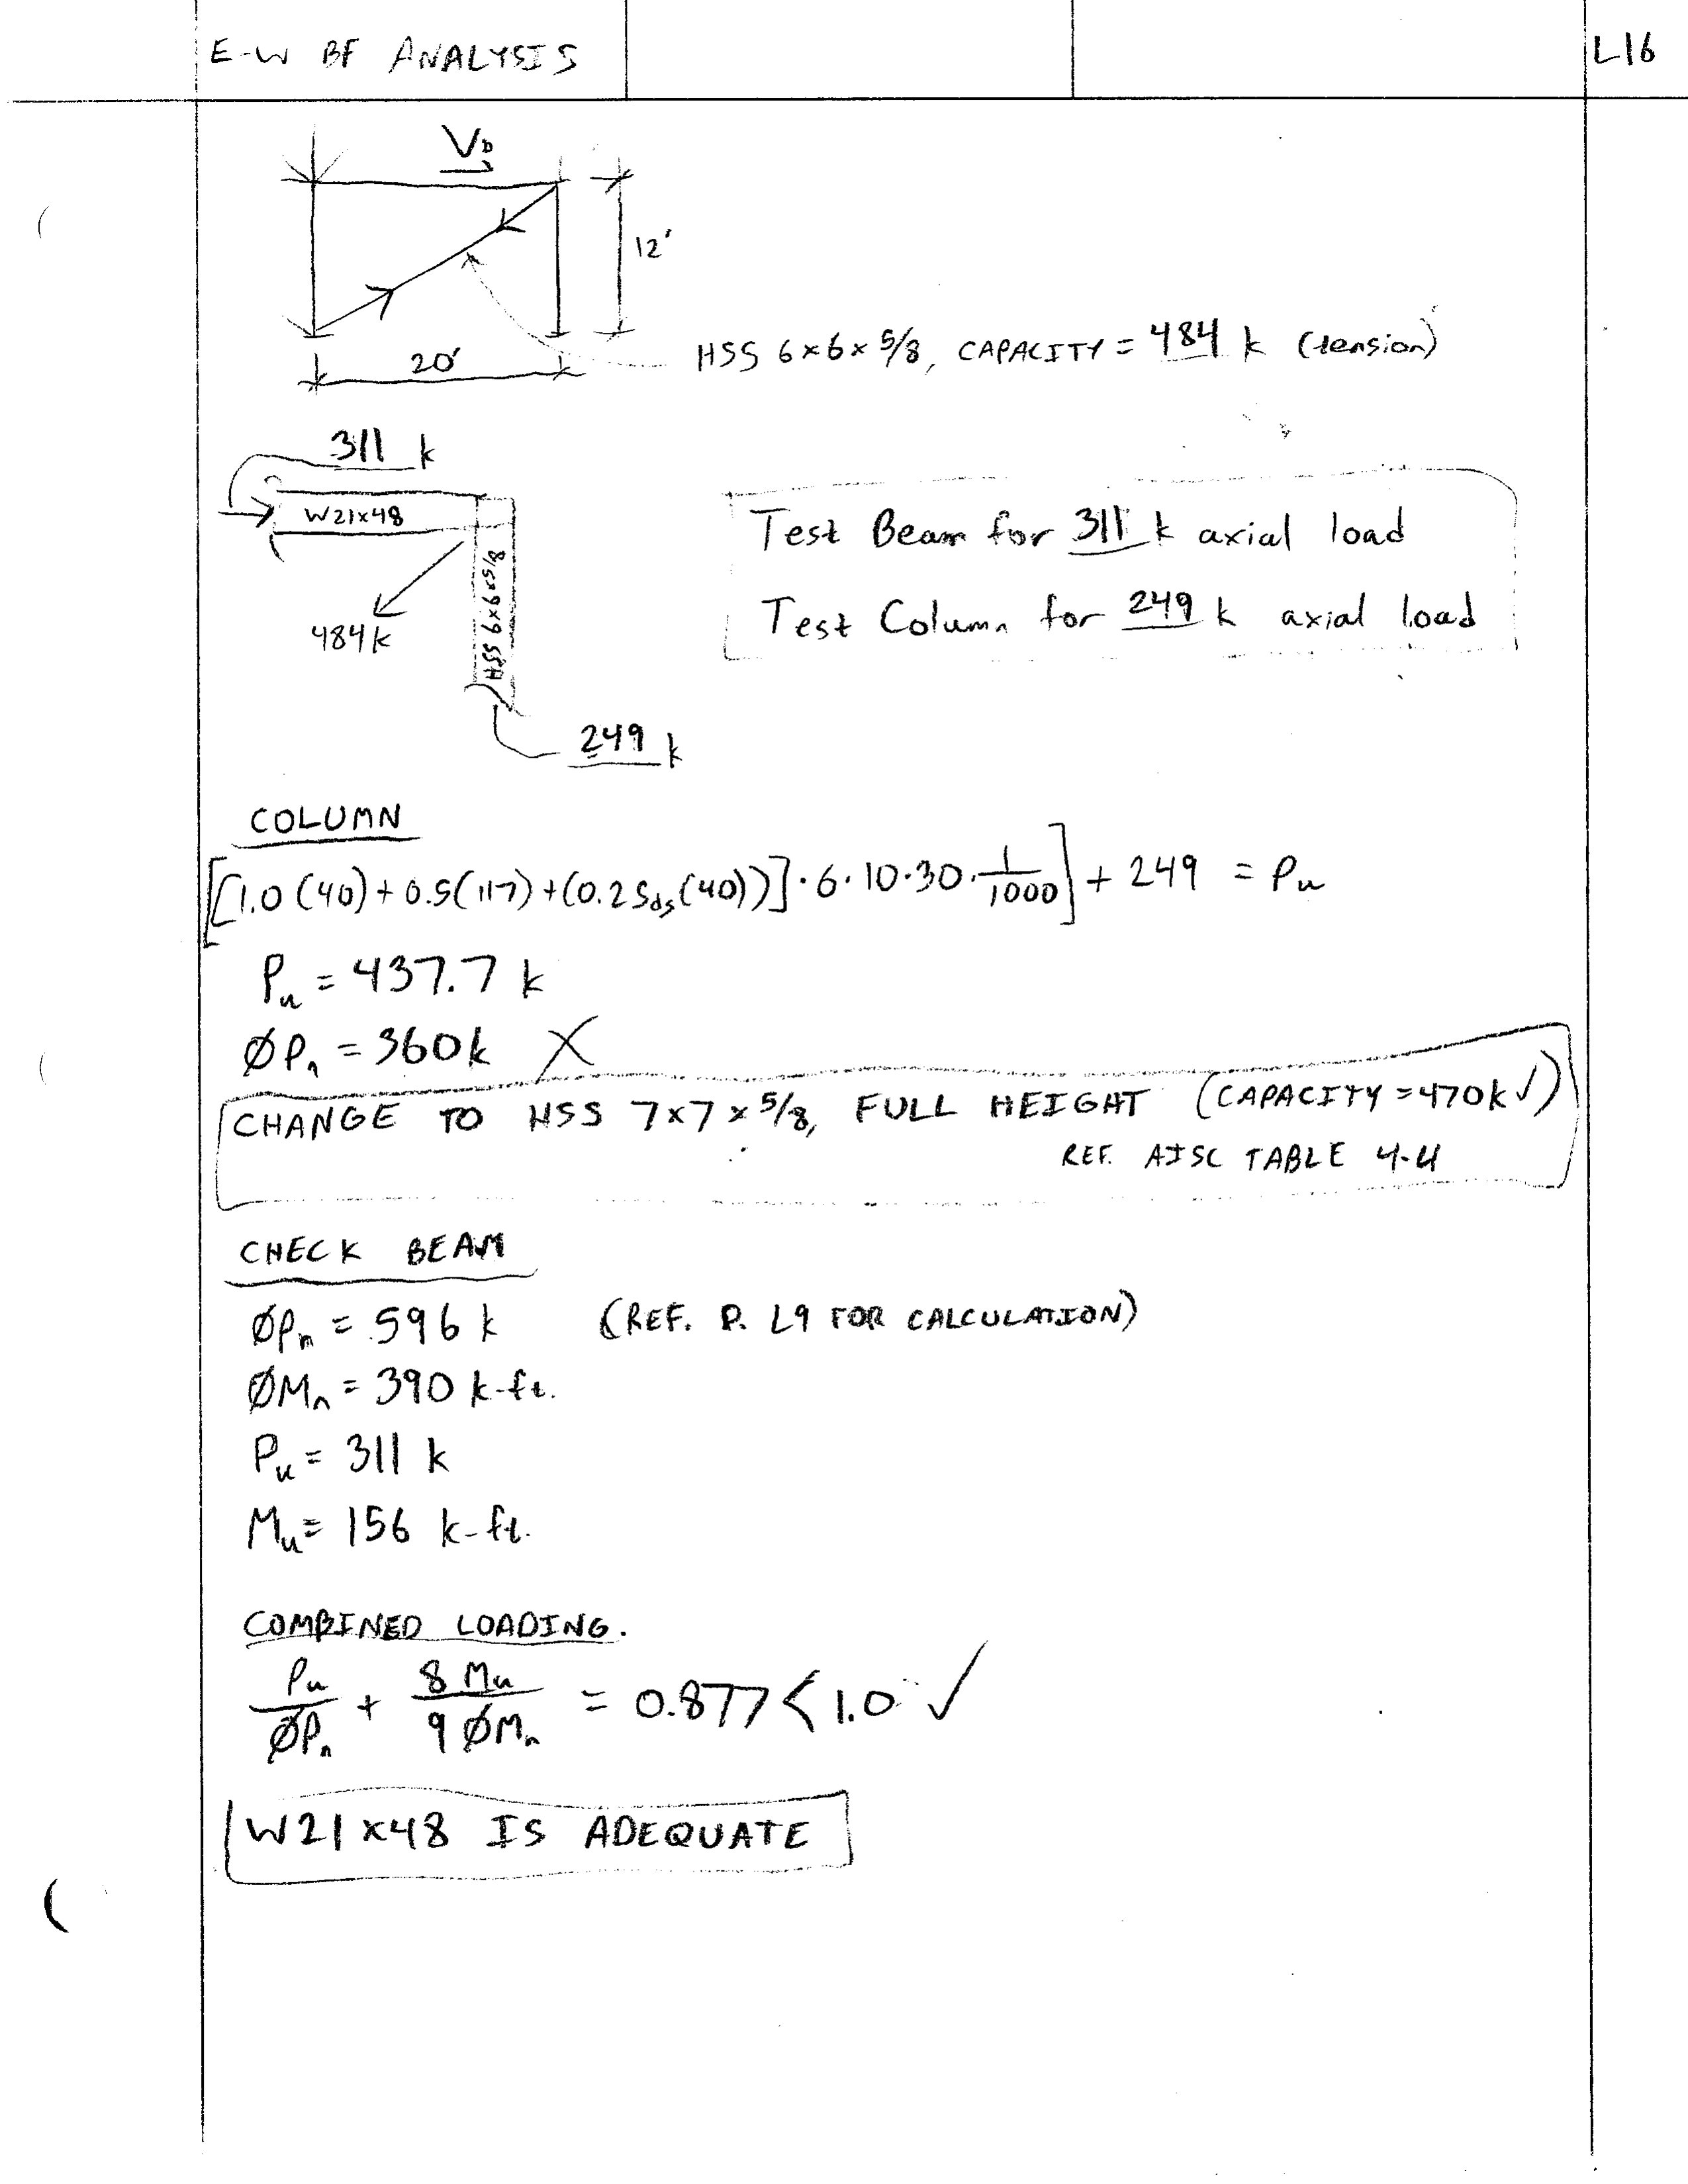 E-W BF ANALYSIS
L16
Vb
12'
20'
HSS 6x6x5/8, CAPACITY = 484 k (tension)
311 k
W21x48
484k
HSS 6x6x5/8
249 k
Test Beam for 311 k axial load
Test Column for 249 k axial load
COLUMN
[[1.0(40)+0.5(117)+(0.2Sds(40))]·6·10·30·1/1000]+249 = Pu
Pu = 437.7 k
ØPn = 360k X
CHANGE TO HSS 7x7x5/8, FULL HEIGHT (CAPACITY=470k✓)
REF. AISC TABLE 4-4
CHECK BEAM
ØPn = 596 k (REF. P. L9 FOR CALCULATION)
ØMn = 390 k-ft.
Pu = 311 k
Mu = 156 k-ft.
COMBINED LOADING.
Pu/ØPn + 8 Mu/9 ØMn = 0.877 < 1.0 ✓
W21x48 IS ADEQUATE